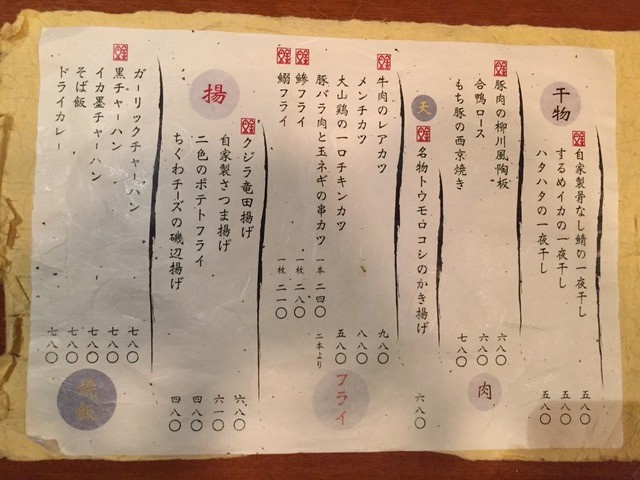 干物
自家製骨なし鯖の一夜干し 五八〇
するめイカの一夜干し 五八〇
ハタハタの一夜干し 五八〇
肉
豚肉の柳川風陶板 六八〇
合鴨ロース 六八〇
もち豚の西京焼き 七八〇
天
名物トウモロコシのかき揚げ 六八〇
フライ
牛肉のレアカツ 九八〇
メンチカツ 八八〇
大山鶏の一口チキンカツ 五八〇
豚バラ肉と玉ネギの串カツ 一本 二四〇 二本より
鯵フライ 一枚 二八〇
鰯フライ 一枚 二一〇
揚
クジラ竜田揚げ 六八〇
自家製さつま揚げ 六一〇
二色のポテトフライ 四八〇
ちくわチーズの磯辺揚げ 四八〇
焼飯
ガーリックチャーハン 七八〇
黒チャーハン 七八〇
イカ墨チャーハン 七八〇
そば飯 七八〇
ドライカレー 七八〇